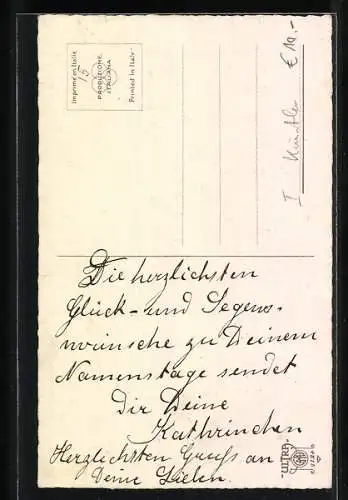 Imprimé en Italie
PRODUZIONE
ITALIANA
Printed in Italy
15
I Künstler € 10,-
Die herzlichsten
Glück- und Segens-
wünsche zu Deinem
Namenstage sendet
Dir Deine
Kathrinchen
Herzlichsten Gruss an
Deine Lieben.
"ULTRA"